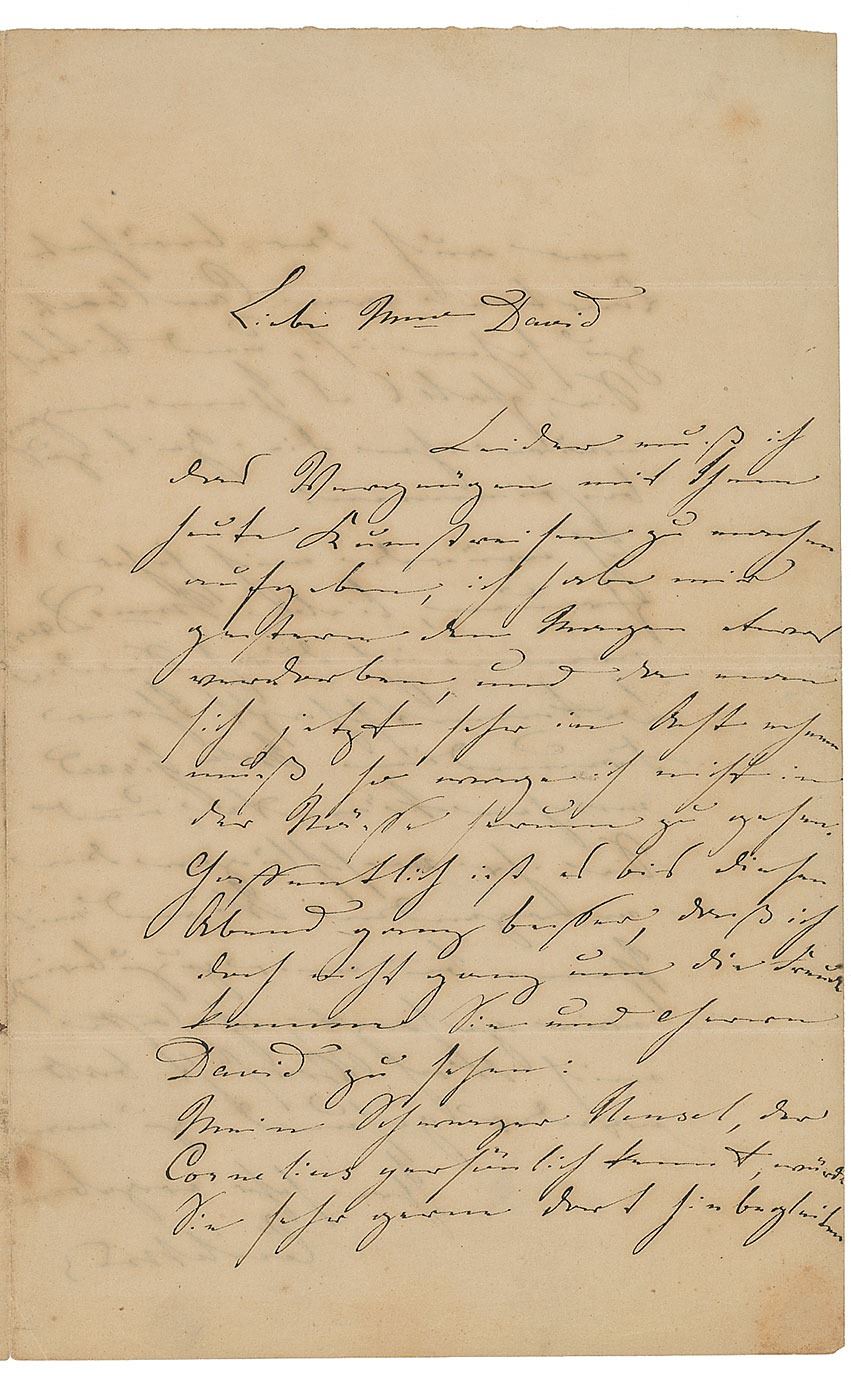 Liebe Mme David
Leider muß ich
das Vergnügen mit Ihnen
heute Kunstreisen zu machen
aufgeben, ich habe mir
gestern den Magen etwas
verdorben, und da man
sich jetzt sehr in Acht nehmen
muß, so wage ich nicht in
der Nässe herum zu gehen.
Hoffentlich ist es bis diesen
Abend ganz besser, daß ich
doch nicht ganz um die Freude
komme Sie und Herrn
David zu sehen:
Mein Schwager Hensel, der
Cornelius persönlich kennt, würde
Sie sehr gerne dort hinbegleiten